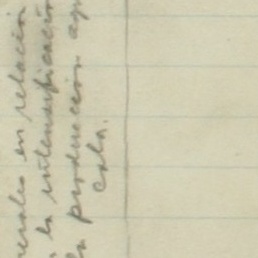 erales en relación
la intensificación
la producción agrí
cola.